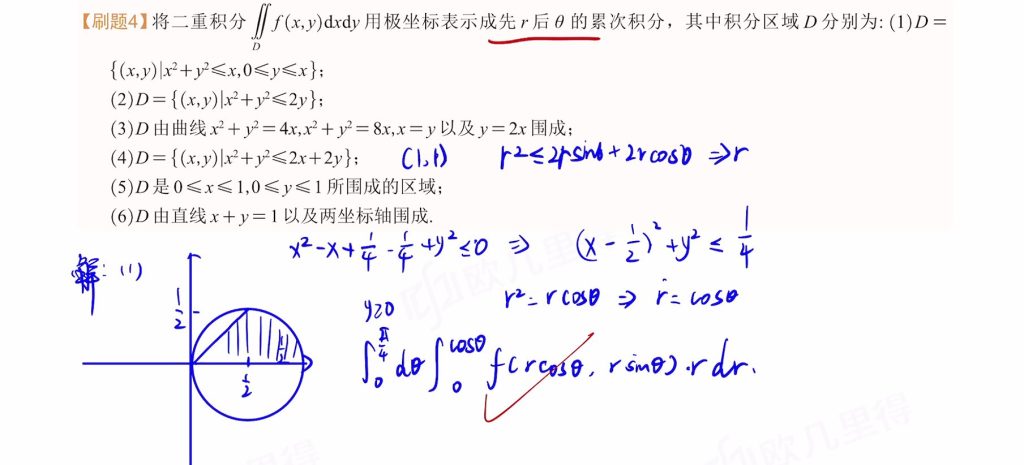 【刷题4】将二重积分 ∬_D f(x,y)dxdy 用极坐标表示成先 r 后 θ 的累次积分，其中积分区域 D 分别为：(1)D=
{(x,y)|x²+y²≤x,0≤y≤x};
(2)D={(x,y)|x²+y²≤2y};
(3)D 由曲线 x²+y²=4x,x²+y²=8x,x=y 以及 y=2x 围成;
(4)D={(x,y)|x²+y²≤2x+2y}; (1,1) r²≤2rsinθ+2rcosθ ⇒r
(5)D 是 0≤x≤1,0≤y≤1 所围成的区域;
(6)D 由直线 x+y=1 以及两坐标轴围成.
x²-x+1/4-1/4+y²≤0 ⇒ (x-1/2)²+y²≤1/4
解：(1)
1/2
r²=rcosθ ⇒ r=cosθ
y≥0
∫_0^{π/4} dθ ∫_0^{cosθ} f(rcosθ, rsinθ)·r dr.
1/2
欧几里得
欧几里得
欧几里得